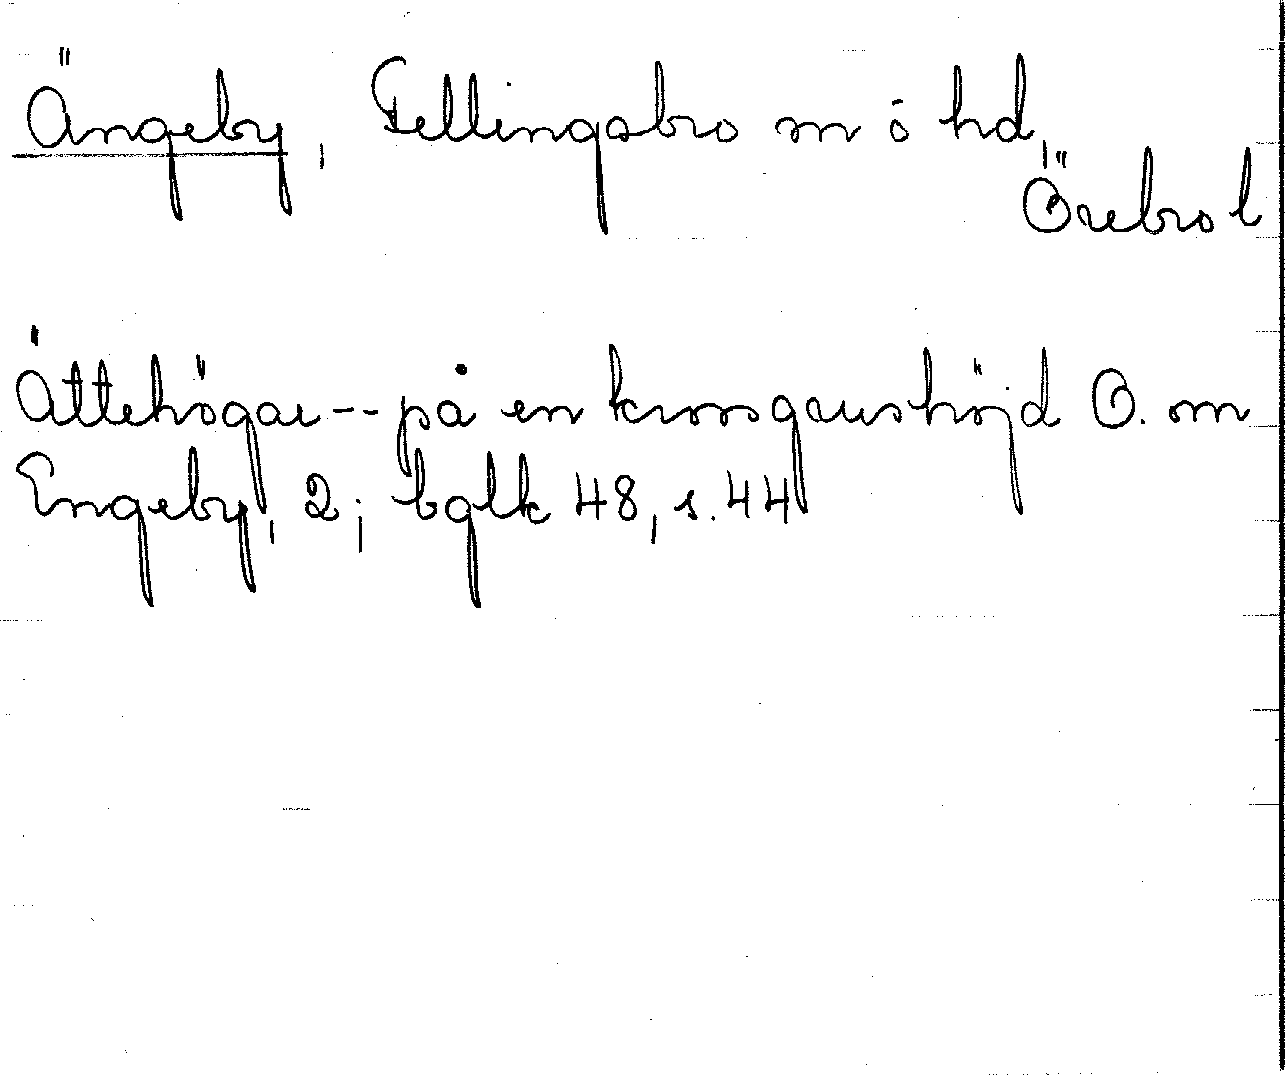 Ängeby, Fellingsbro sn o hd,
Örebro l
Ättehögar -- på en krossgrushöjd O. om
Engeby, 2; bglk 48, s. 44